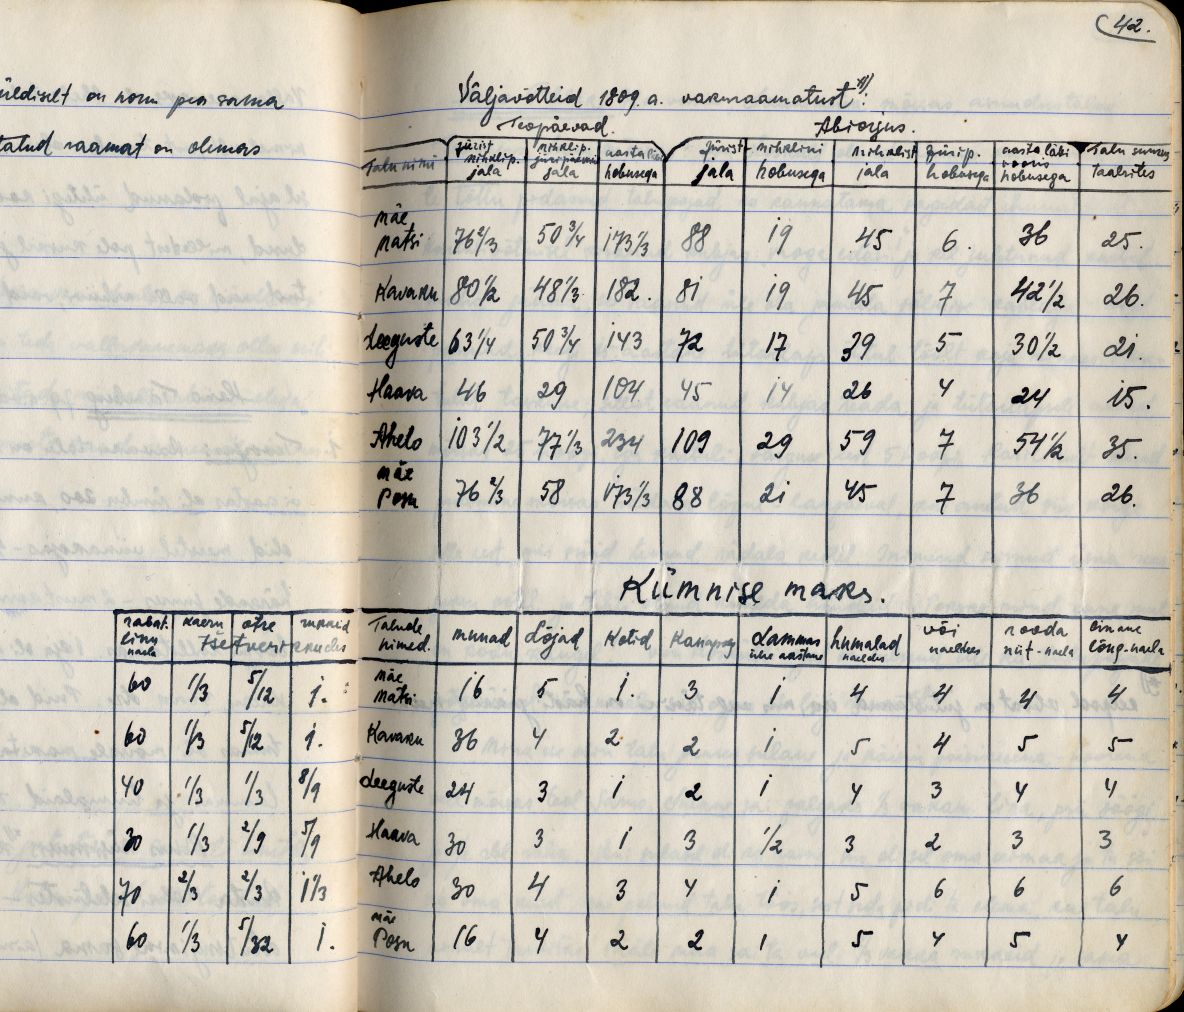 42.
üldiselt on nonu pea sama
Väljavõtteid 1809 a. vakuraamatust x)!
Teopäevad.
Abiorjus.
talud raamat on olemas
Talu nimi | jürist mihklip. jala | mihklip. jüripäevani jala | aasta läbi hobusega | jürist jala | mihklini hobusega | mihklist jala | jürip. hobusega | aasta läbi vooris hobusega | Talu suurus taalrites
Mäe Matsi | 76 2/3 | 50 3/4 | 173 1/3 | 88 | 19 | 45 | 6. | 36 | 25.
Kavaku | 80 1/2 | 48 1/3 | 182. | 81 | 19 | 45 | 7 | 42 1/2 | 26.
Leeguste | 63 1/4 | 50 3/4 | 143 | 72 | 17 | 39 | 5 | 30 1/2 | 21.
Haava | 46 | 29 | 104 | 45 | 14 | 26 | 4 | 24 | 15.
Ahelo | 103 1/2 | 77 1/3 | 234 | 109 | 29 | 59 | 7 | 54 1/2 | 35.
Mäe Posu | 76 2/3 | 58 | 173 1/3 | 88 | 21 | 45 | 7 | 36 | 26.
Kümnise maks.
rabat. linu naela | kaeru | otre | rukkeid
tšetverikkudes
Talude nimed. | munad | Lõjad | Kotid | Kanapoeg | Lammas ühe aastane | humalad naeldes | või naeldes | rooda niit-naela | linane lõng-naela
60 | 1/3 | 5/12 | 1. | Mäe Matsi | 16 | 5 | 1. | 3 | 1 | 4 | 4 | 4 | 4
60 | 1/3 | 5/12 | 1. | Kavaku | 36 | 4 | 2 | 2 | 1 | 5 | 4 | 5 | 5
40 | 1/3 | 1/3 | 8/9 | Leeguste | 24 | 3 | 1 | 2 | 1 | 4 | 3 | 4 | 4
30 | 1/3 | 2/9 | 5/9 | Haava | 30 | 3 | 1 | 3 | 1/2 | 3 | 2 | 3 | 3
70 | 2/3 | 2/3 | 1 1/3 | Ahelo | 30 | 4 | 3 | 4 | 1 | 5 | 6 | 6 | 6
60 | 1/3 | 5/32 | 1. | Mäe Posu | 16 | 4 | 2 | 2 | 1 | 5 | 4 | 5 | 4